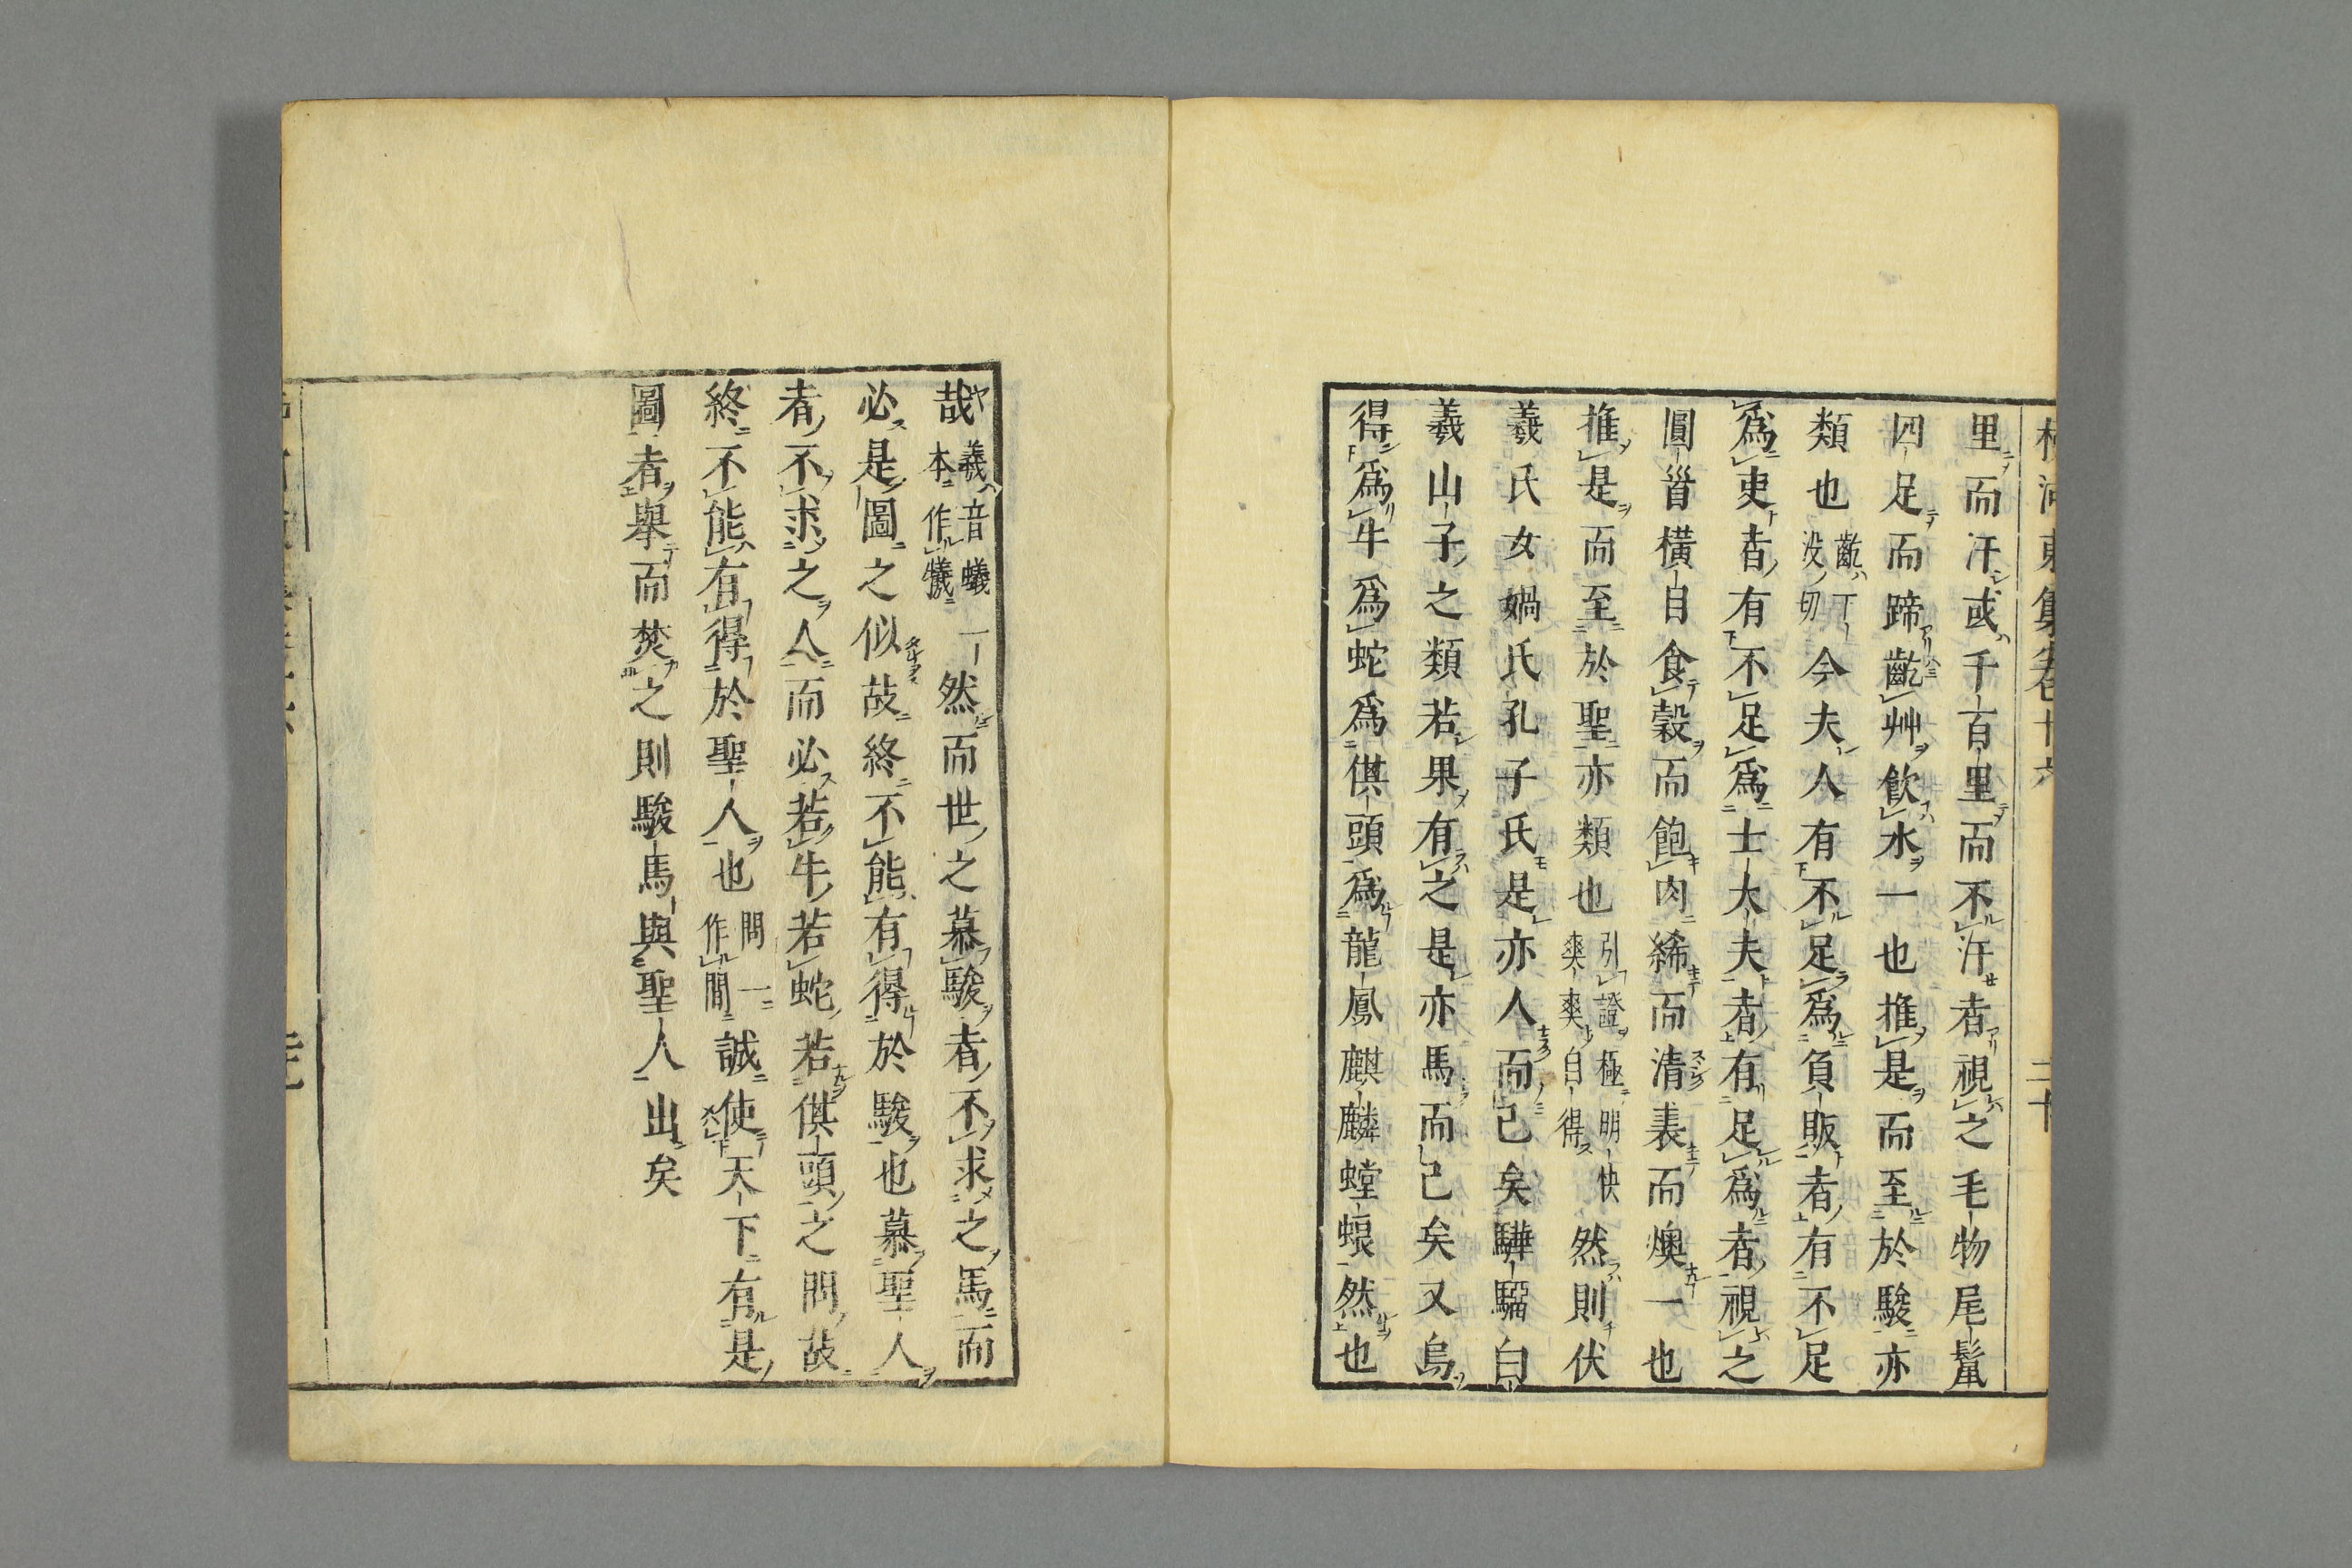 柳河東集卷十六　二十
里而汗或千百里而不汗者視之毛物尾鬣
四足而蹄齕艸飲水一也推是而至於駿亦
類也齕下没切今夫人有不足爲負販者有不足
爲吏者有不足爲士大夫者有足爲者視之
圓首橫目食穀而飽肉絺而清裘而燠一也
推是而至於聖亦類也引證極明快爽爽自得然則伏
羲氏女媧氏孔子氏是亦人而已矣驊騮白
羲山子之類若果有之是亦馬而已矣又烏
得爲牛爲蛇爲倛頭爲龍鳳麒麟螳蜋然也
哉羲音蟻一本作犠然而世之慕駿者不求之馬而
必是圖之似故終不能有得於駿也慕聖人
者不求之人而必若牛若蛇若倛頭之問故
終不能有得於聖人也問一作間誠使天下有是
圖者舉而焚之則駿馬與聖人出矣